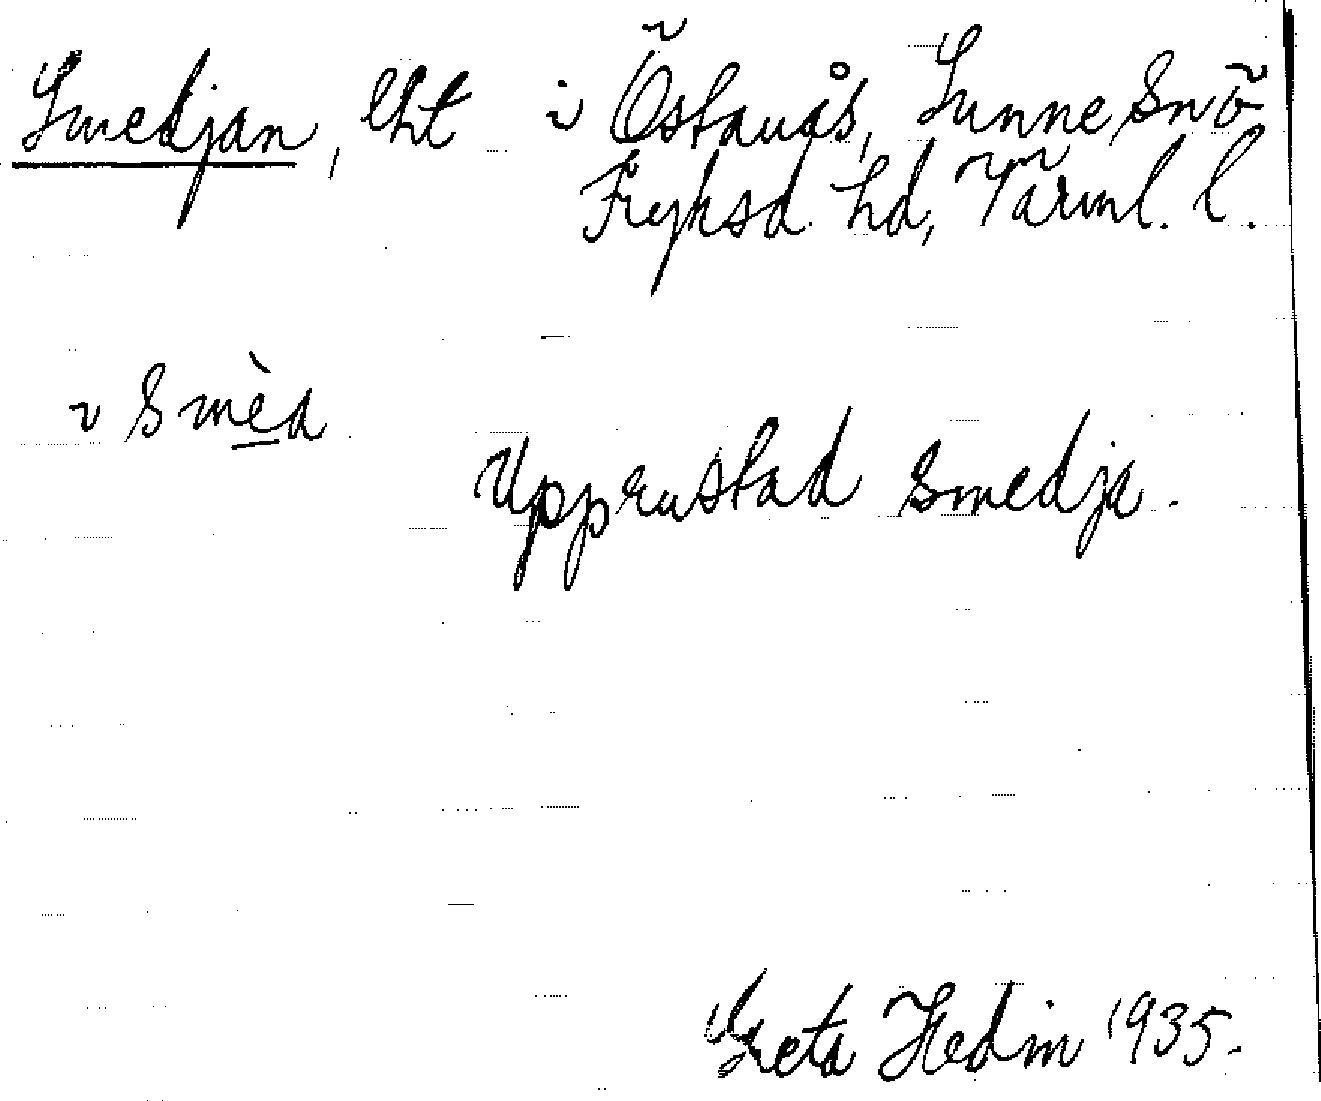 Smedjan, lht i Östanås, Sunne sn
Fryksd. hd, Värml. l.
i smèd
Uppreustad smedja.
Greta Hedin 1935.